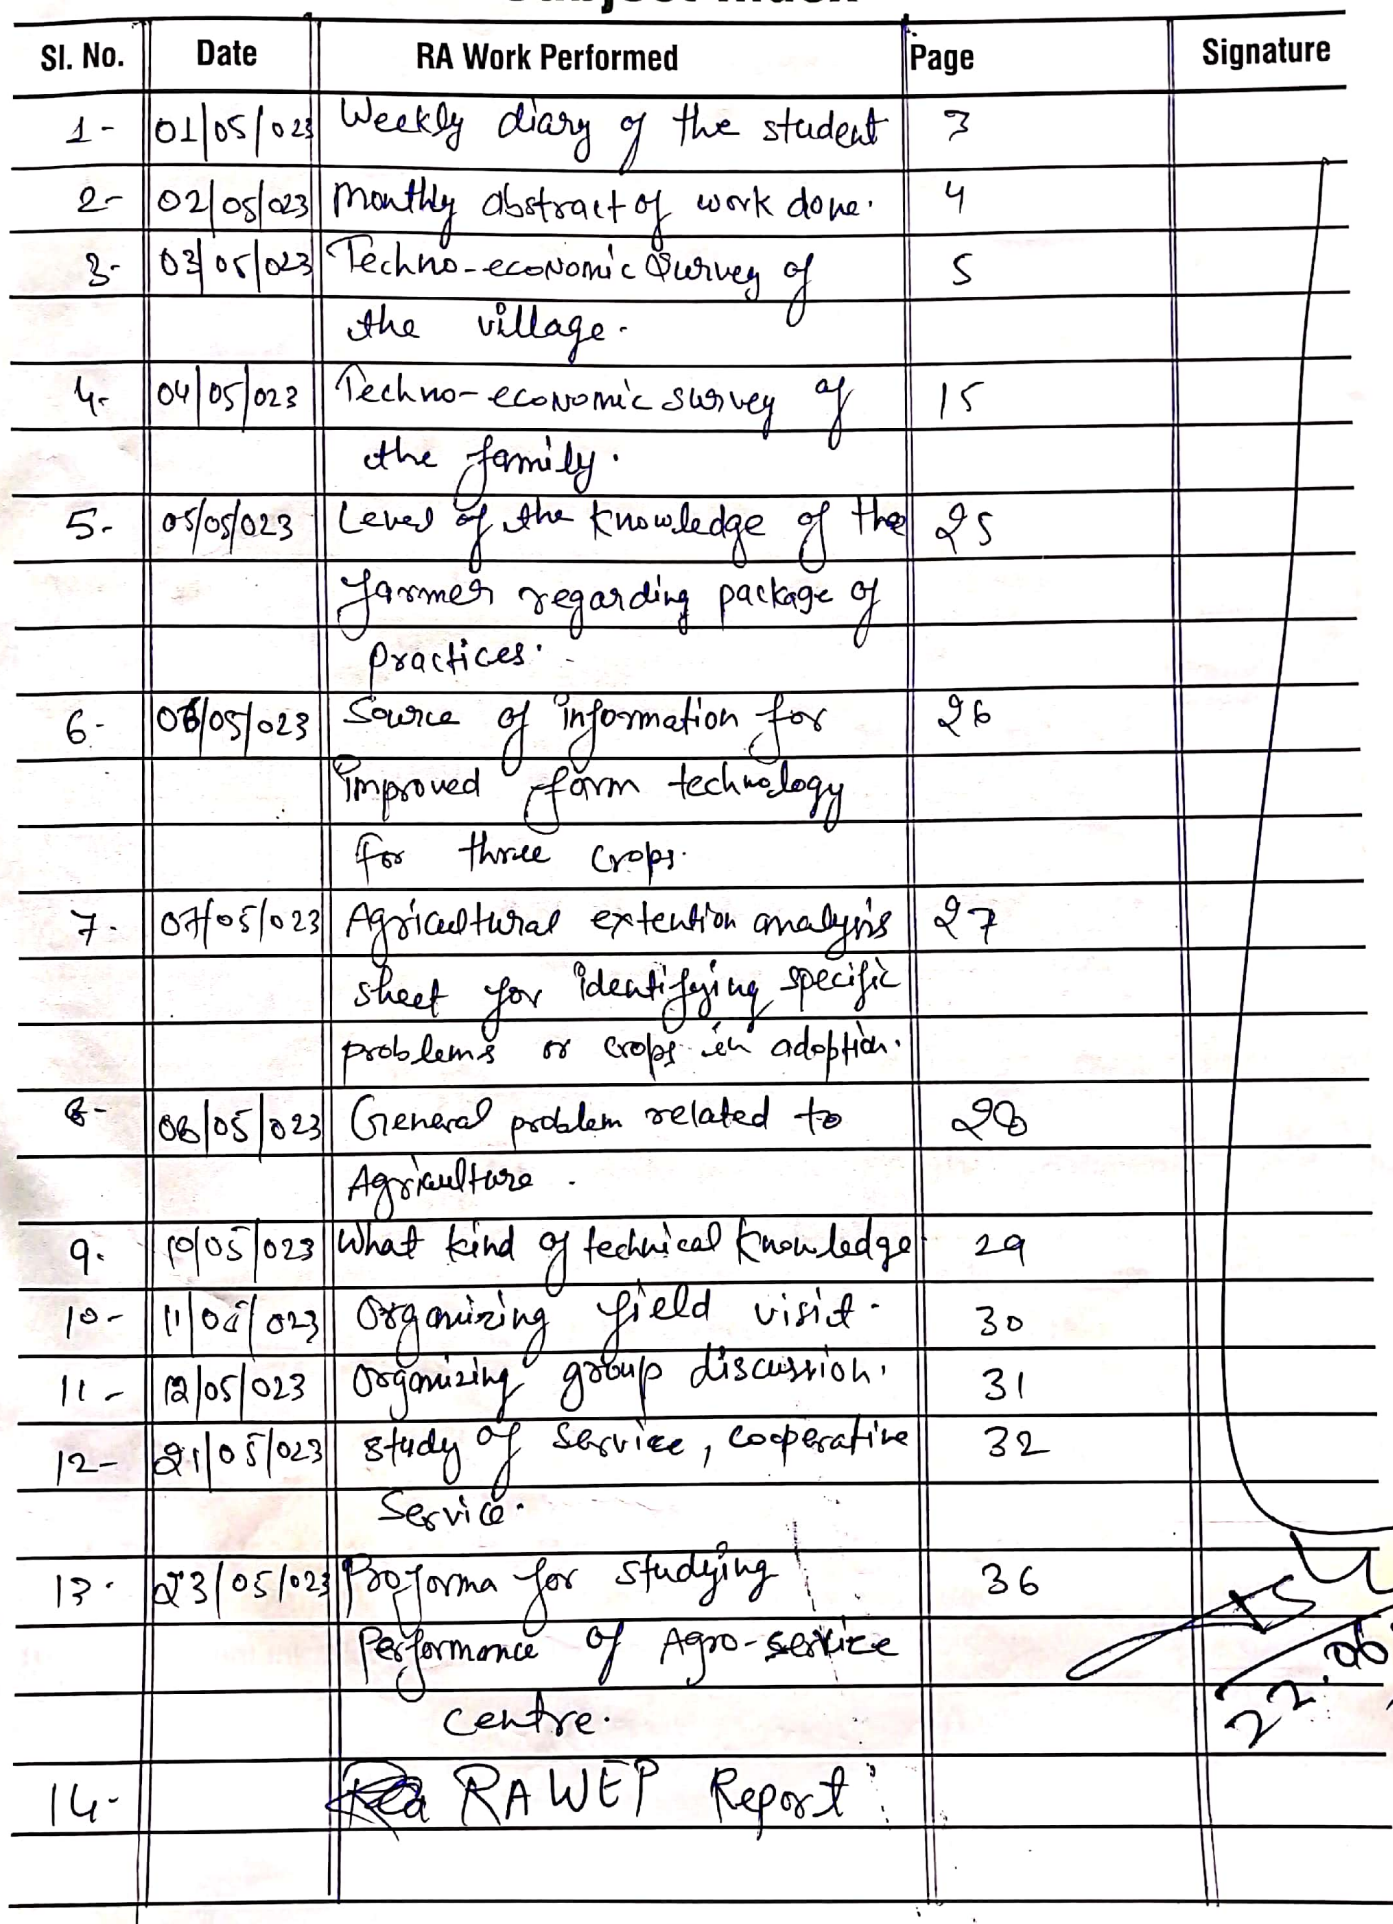 Subject Index
Sl. No. Date RA Work Performed Page Signature
1- 01/05/023 Weekly diary of the student 3
2- 02/05/023 Monthly abstract of work done. 4
3- 03/05/023 Techno-economic Survey of 5
the village.
4- 04/05/023 Techno-economic survey of 15
the family.
5- 05/05/023 Level of the knowledge of the 25
farmer regarding package of
practices.
6- 06/05/023 Source of information for 26
improved farm technology
for three crops.
7. 07/05/023 Agricultural extention analysis 27
sheet for identifying specific
problems or crops in adoption.
8- 08/05/023 General problem related to 28
Agriculture.
9. 10/05/023 What kind of technical knowledge 29
10- 11/05/023 Organizing field visit. 30
11- 12/05/023 Organizing group discussion. 31
12- 21/05/023 study of service, cooperative 32
Service.
13. 23/05/023 Proforma for studying 36
Performance of Agro-service
centre.
22.06
14- RAWEP Report